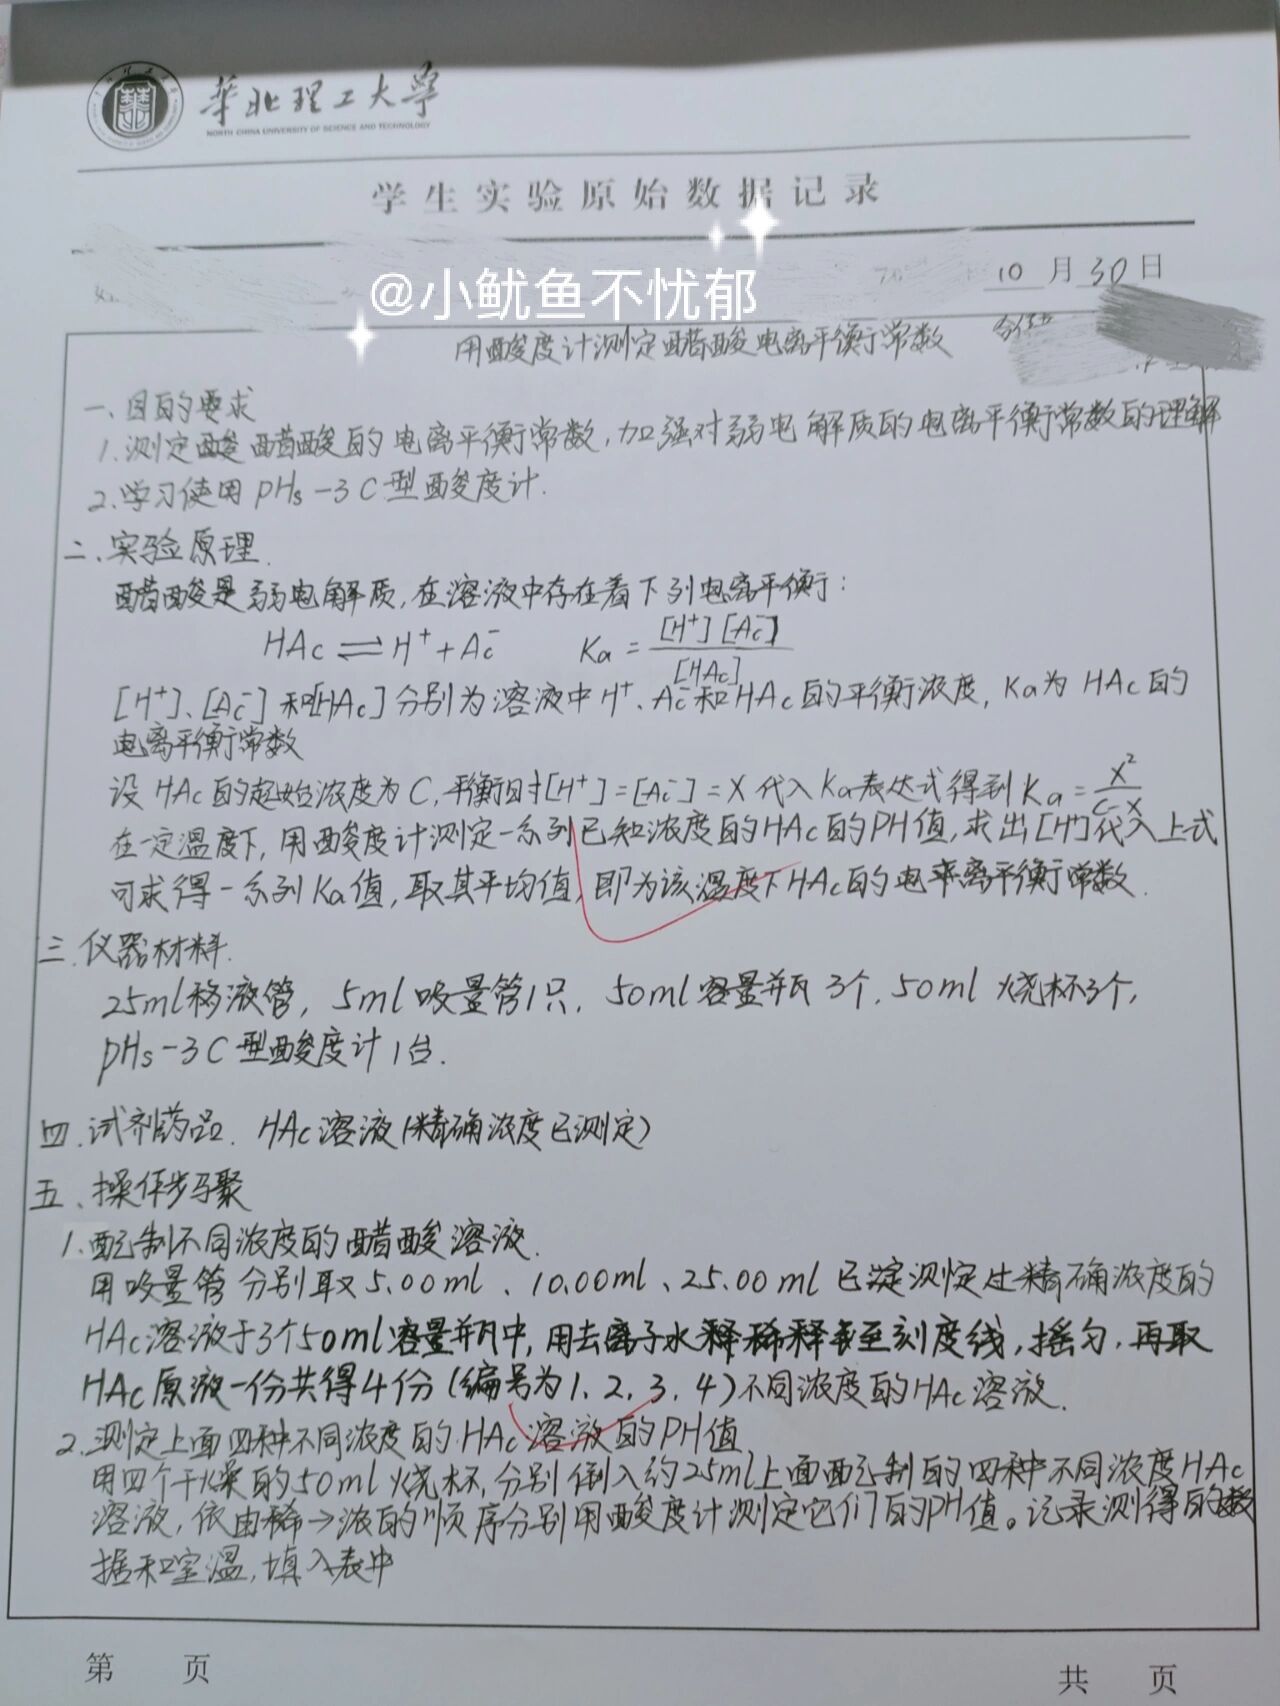 華北理工大學
NORTH CHINA UNIVERSITY OF SCIENCE AND TECHNOLOGY
学生实验原始数据记录
10月30日
@小鱿鱼不忧郁
用酸度计测定醋酸电离平衡常数
一、目的要求
1.测定酸醋酸的电离平衡常数,加强对弱电解质的电离平衡常数的理解
2.学习使用pHs-3C型酸度计.
二、实验原理.
醋酸是弱电解质,在溶液中存在着下列电离平衡:
HAc⇌H⁺+Ac⁻ Ka=[H⁺][Ac⁻]/[HAc]
[H⁺]、[Ac⁻]和[HAc]分别为溶液中H⁺、Ac⁻和HAc的平衡浓度,Ka为HAc的
电离平衡常数
设HAc的起始浓度为C,平衡时[H⁺]=[Ac⁻]=X代入Ka表达式得到Ka=X²/C-X
在一定温度下,用酸度计测定一系列已知浓度的HAc的PH值,求出[H⁺]代入上式
可求得一系列Ka值,取其平均值,即为该温度下HAc的电离平衡常数.
三.仪器材料.
25ml移液管,5ml吸量管1只,50ml容量瓶3个,50ml烧杯3个,
pHs-3C型酸度计1台.
四.试剂药品.HAc溶液(精确浓度已测定)
五、操作步骤
1.配制不同浓度的醋酸溶液.
用吸量管分别取5.00ml、10.00ml、25.00ml已测定过精确浓度的
HAc溶液于3个50ml容量瓶中,用去离子水稀释至刻度线,摇匀,再取
HAc原液一份共得4份(编号为1,2,3,4)不同浓度的HAc溶液.
2.测定上面四种不同浓度的HAc溶液的PH值
用四个干燥的50ml烧杯,分别倒入约25ml上面配制的四种不同浓度HAc
溶液,依由稀→浓的顺序分别用酸度计测定它们的PH值。记录测得的数
据和室温,填入表中
第 页
共 页